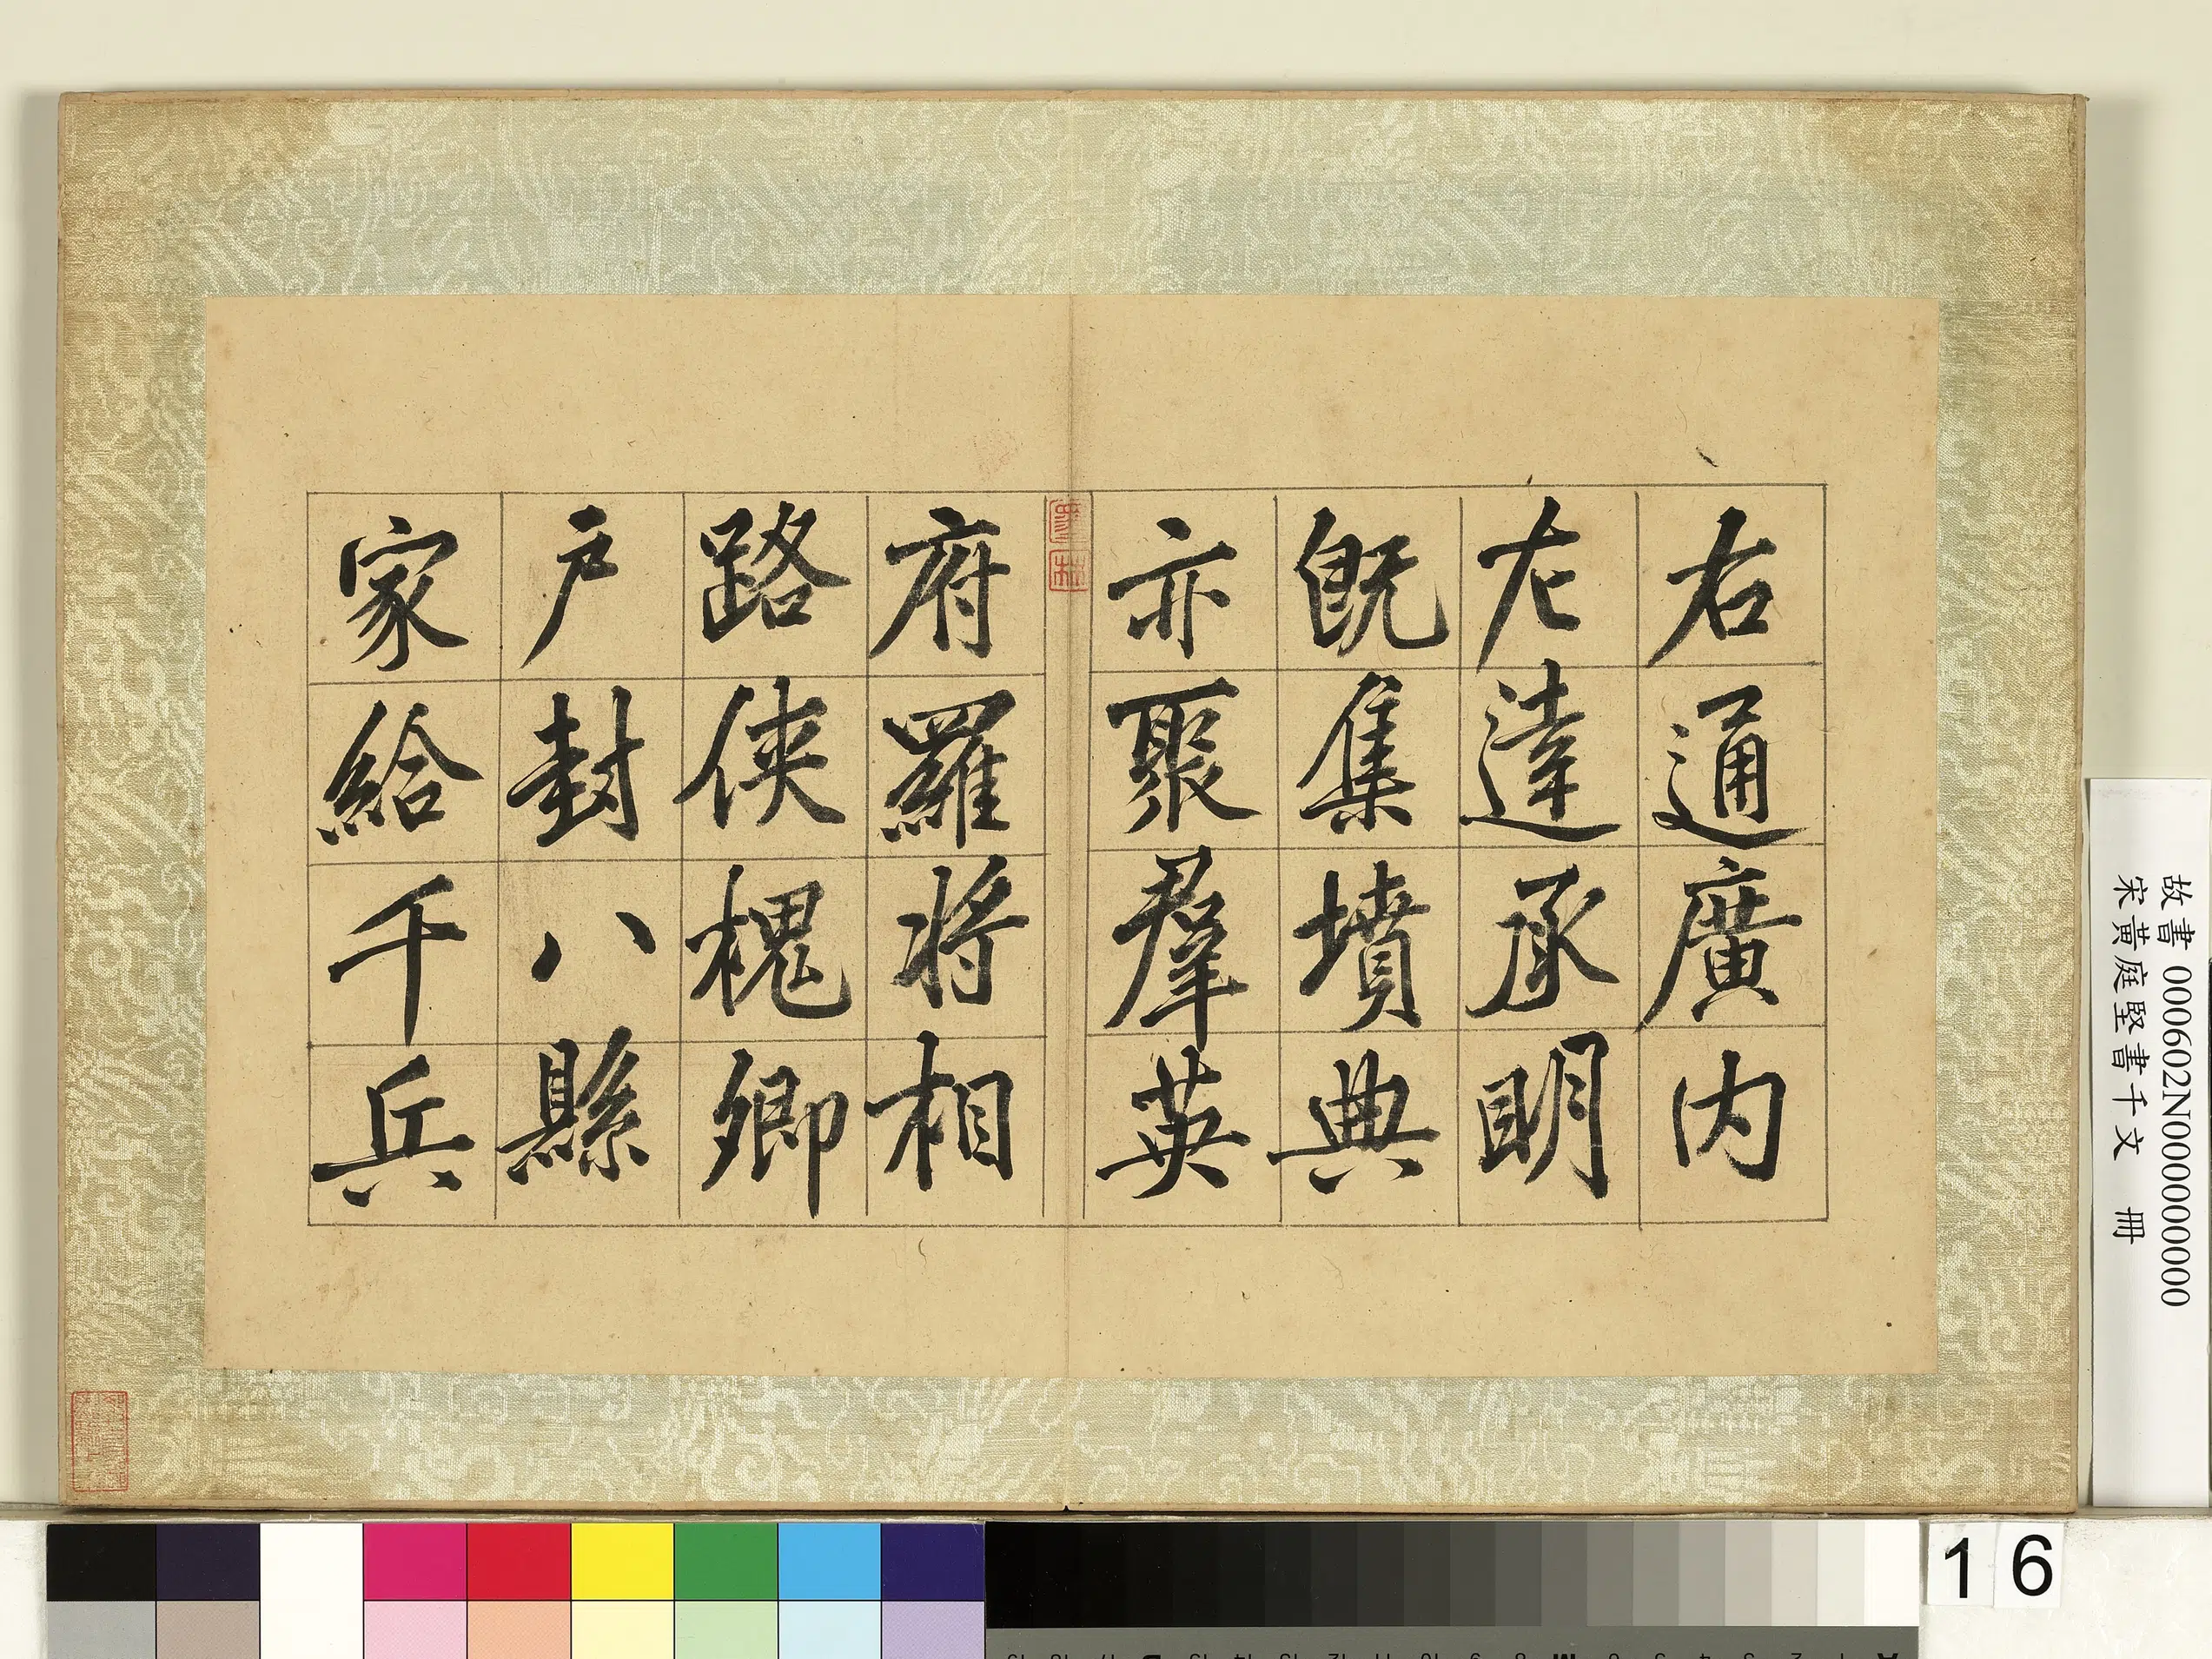 右通廣内
左達承明
既集墳典
亦聚羣英
府羅將相
路俠槐卿
戶封八縣
家給千兵
故書 000602N000000000
宋黃庭堅書千文 冊
16